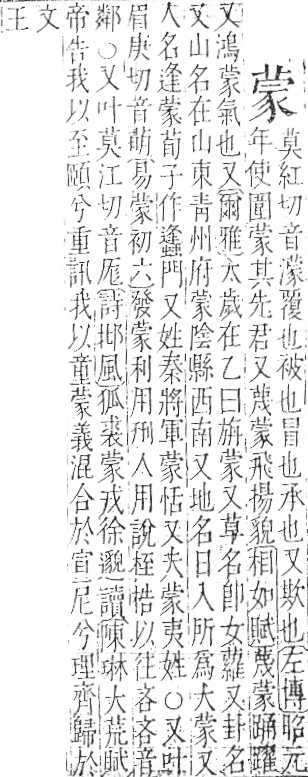 蒙
莫紅切音濛覆也被也冒也承也又欺也左傳昭元
年使圍蒙其先君又蔑蒙飛揚貌相如賦蔑蒙踊躍
又鴻蒙氣也又爾雅太歲在乙曰旃蒙又草名卽女蘿又封名
又山名在山東青州府蒙陰縣西南又地名日入所爲大蒙又
人名逢蒙荀子作蠭門又姓秦將軍蒙恬又夫蒙夷姓○又叶
眉庚切音萌易蒙初六發蒙利用刑人用說桎梏以往吝吝音
鄰○又叶莫江切音厖詩邶風狐裘蒙戎徐邈讀陳琳大荒賦
帝告我以至頤兮重訊我以童蒙義混合於宣尼兮理齊歸於
文
王